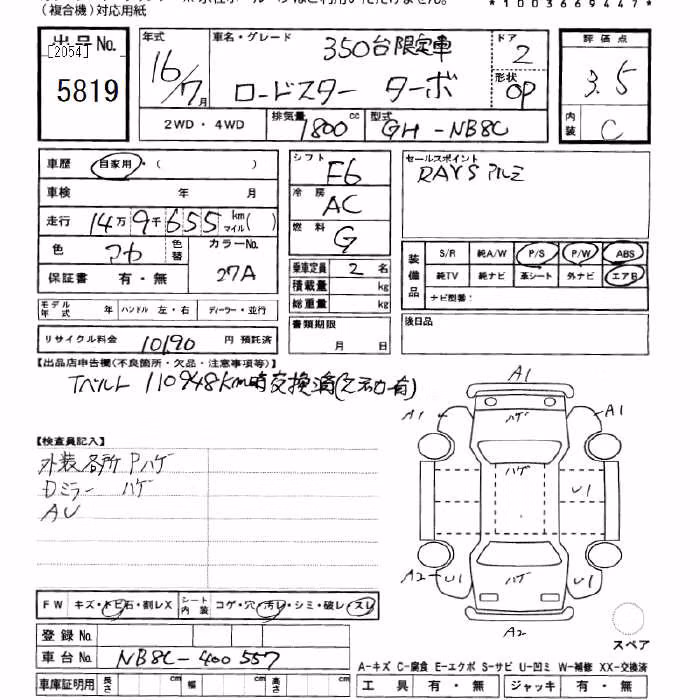 (複合機)対応用紙
*1003669447*
出品No.
[2054]
5819
年式
16/7月
車名・グレード
350台限定車
ロードスター ターボ
ドア
2
形状
OP
評価点
3.5
内装
C
2WD・4WD
排気量
1800cc
型式
GH-NB8C
車歴 自家用・( )
車検 年 月
走行 14万9千655km マイル( )
色 アカ 色替 カラーNo. 27A
保証書 有・無
シフト F6
冷房 AC
燃料 G
乗車定員 2名
積載量 kg
総重量 kg
書類期限
月 日
セールスポイント
RAYSアルミ
装備品
S/R 純A/W P/S P/W ABS
純TV 純ナビ 革シート 外ナビ エアB
ナビ型番:
後日品
モデル年式 年 ハンドル 左・右 ディーラー・並行
リサイクル料金 10190円 預託済
【出品店申告欄(不良箇所・欠品・注意事項等)】
Tベルト 110948km時交換済(シール有)
【検査員記入】
外装各所Pハゲ
Dミラー ハゲ
AU
A1
A1
A1
ハゲ
ハゲ
U1
A2
U1
ハゲ
U1
A2
スペア
FW キズ・トビ石・割レX シート内装 コゲ・穴・汚レ・シミ・破レ・スレ
登録No.
車台No. NB8C-400557
車庫証明用 長さ cm 幅 cm 高さ cm
A-キズ C-腐食 E-エクボ S-サビ U-凹ミ W-補修 XX-交換済
工具 有・無 ジャッキ 有・無